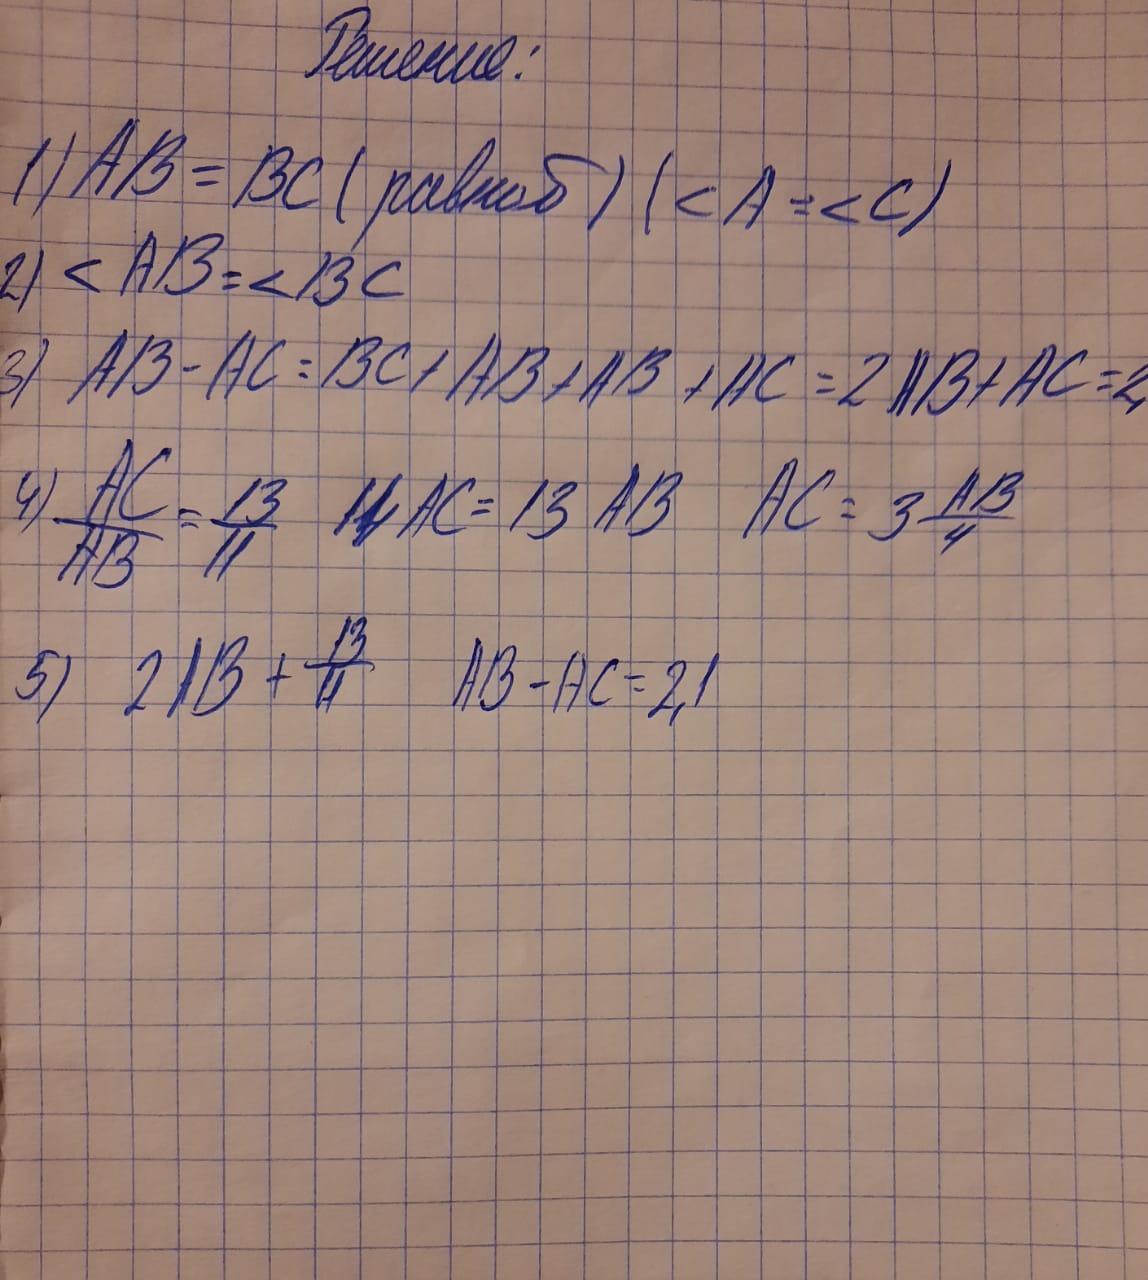 Решение:
1) AB = BC (равноб) (< A = < C)
2) < AB = < BC
3) AB - AC = BC + AB + AB + AC = 2 AB + AC = 2,
4) AC/AB = 13/11 11 AC = 13 AB AC = 3 AB/4
5) 2AB + 13/11 AB - AC = 2,1